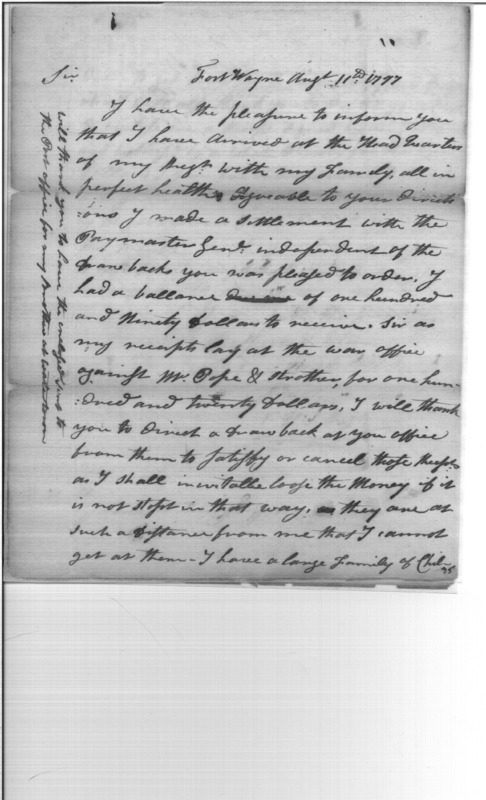 Fort Wayne Augt 11th 1797
Sir
I have the pleasure to inform you
that I have arrived at the Head Quarters
of my Regt with my Family, all in
perfect health. Agreeable to your directi
:ons I made a settlement with the
Paymaster Genl. independent of the
drawbacks you was pleased to order. I
had a ballance of one hundred
and Ninety Dollars to receive. Sir as
my receipts lay at the war office
against Mr. Pope & Brother, for one hun-
:dred and twenty Dollars, I will thank
you to direct a drawback at you office
from them to satisfy or cancel those Recpts
as I shall inevitable loose the Money if it
is not stopt in that way, they are at
such a distance from me that I cannot
get at them - I have a large Family of Chil-
35
will thank you to have the inclosed sent to
the Post office for my Brother at Watertown